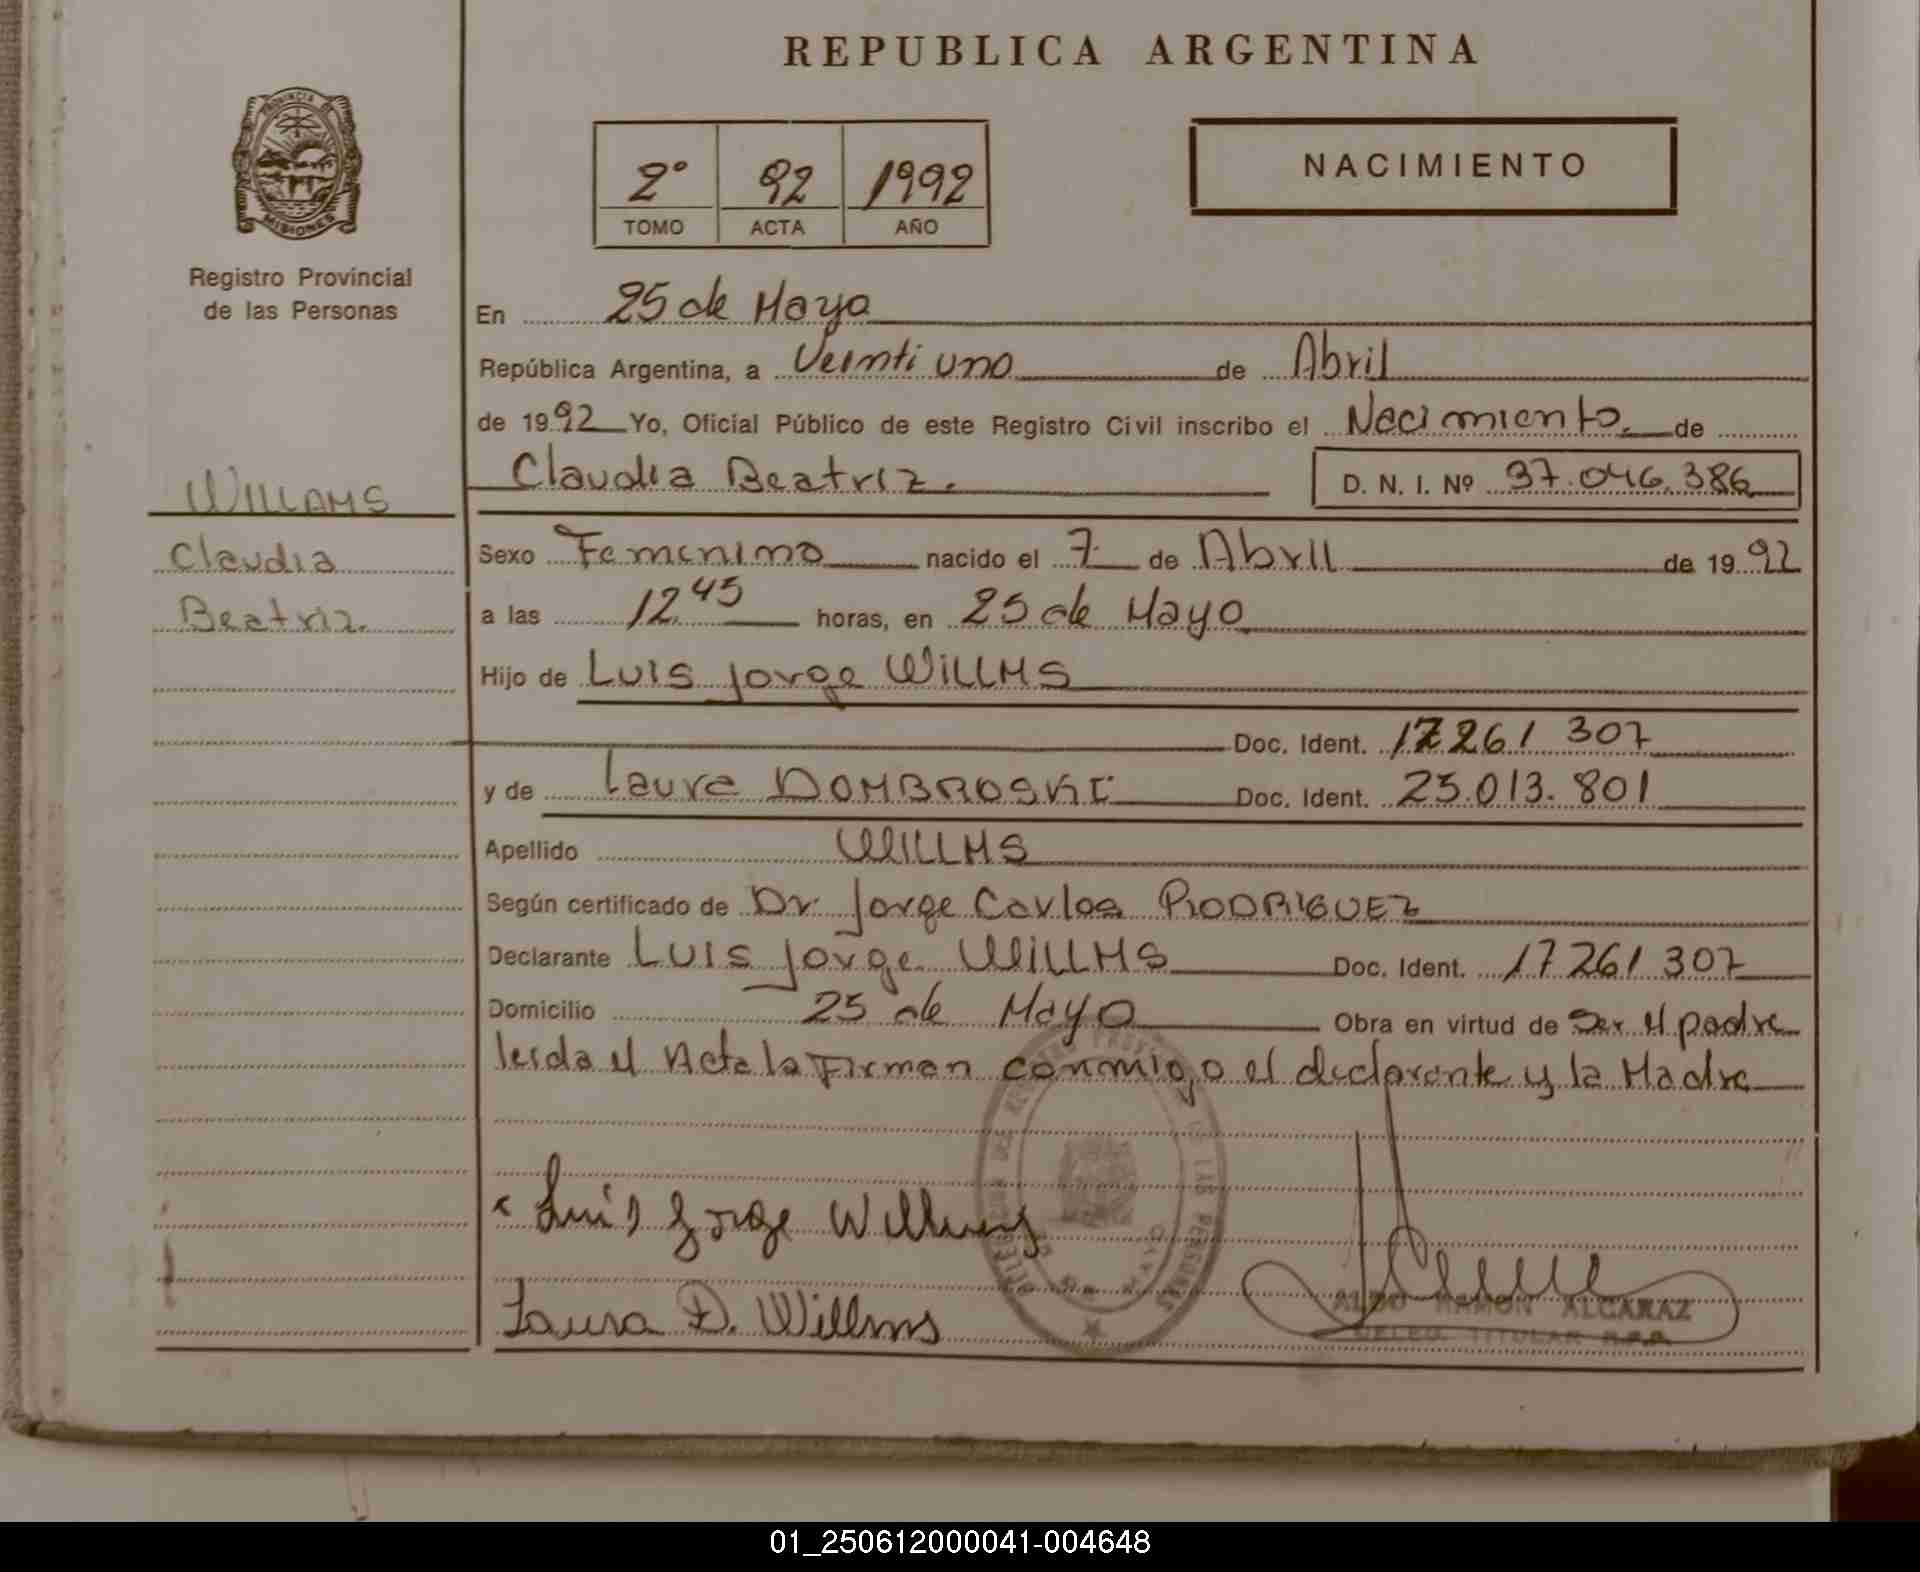 REPUBLICA ARGENTINA
PROVINCIA DE
MISIONES
Registro Provincial
de las Personas
2° 92 1992
TOMO ACTA AÑO
NACIMIENTO
En 25 de Mayo
República Argentina, a Veinti uno de Abril
de 1992 Yo, Oficial Público de este Registro Civil inscribo el Nacimiento. de
Claudia Beatriz. D. N. I. Nº 37.046.386
WILLAMS
Claudia
Beatriz.
Sexo Femenino nacido el 7 de Abril de 1992
a las 12.45 horas, en 25 de Mayo
Hijo de Luis Jorge WILLMS
Doc. Ident. 17261 307
y de Laura DOMBROSKI Doc. Ident. 25.013.801
Apellido WILLMS
Según certificado de Dr. Jorge Carlos RODRIGUEZ
Declarante Luis Jorge WILLMS Doc. Ident. 17261 307
Domicilio 25 de Mayo Obra en virtud de Ser el padre
leida el Acta la Firman conmigo el declarante y la Madre
Luis Jorge Willms
Laura D. Willms
ALDO RAMON ALCARAZ
DELEG. TITULAR R.P.P.
01_250612000041-004648